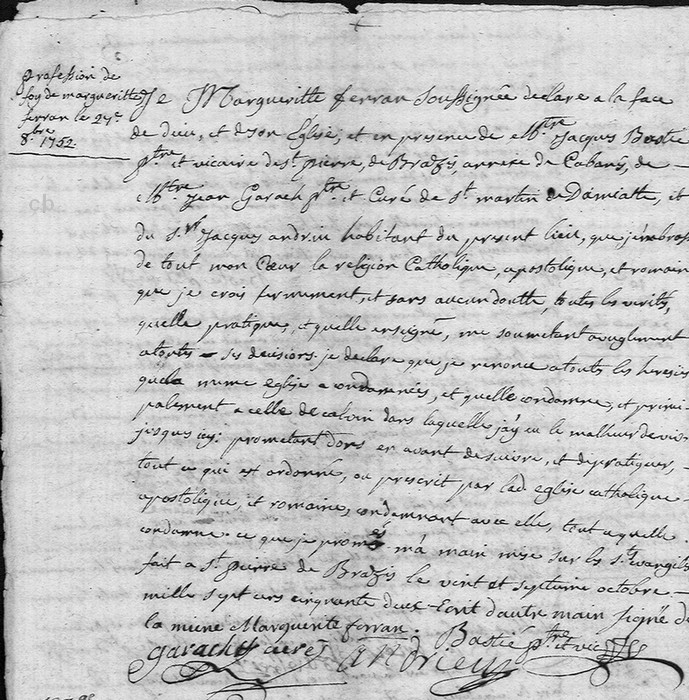 profession de
foy de margueritte
ferran le 27e
8bre 1752
Je Margueritte ferran soussignée declare a la face
de dieu, et de son Eglise, et en presence de Mtre Jacques Bastié
ptre et vicaire de st pierre, de Brazis, annexe de Cabanes, de
Mtre Jean Garach ptre et Curé de st martin de Damiatte, et
du sr Jacques andrieu habitant du present lieu, que j'embrasse
de tout mon Cœur la religion Catholique, apostolique, et romaine
que je crois fermement, et sans aucun doutte, toutes les verités,
quelle pratique, et quelle enseigne, me soumetant aveuglement
atoutes ses decisions. je declare que je renonce atoutes les heresies
que la meme eglise a condamnées, et quelle condamne, et princi
palement a celle de calvin dans laquelle jay eu le malheur de vivre
jusques icy: prometant dors en avant de suivre, et de pratiquer,
tout ce qui est ordonné, ou prescrit par lad. eglise catholique
apostolique, et romaine, condemnant avec elle, tout ce quelle
condamne. ce que je promés ma main mise sur les sts Evangiles
fait a st pierre de Brazis le vint et septieme octobre
mille sept cens cinquante deux. Écrit d'autre main signé de
la meme Marguerite ferran.
garach curé andrieu Bastié ptre et vic